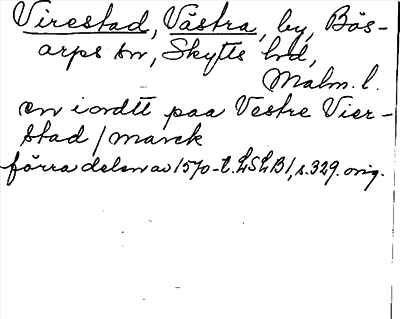 Virestad, Västra, by, Bös-
arps sn, Skytts hd,
Malm. l.
en iordtt paa Vestre Vier-
stad / marck
förra delen av 1570-t. LSLB 1, s. 329. orig.